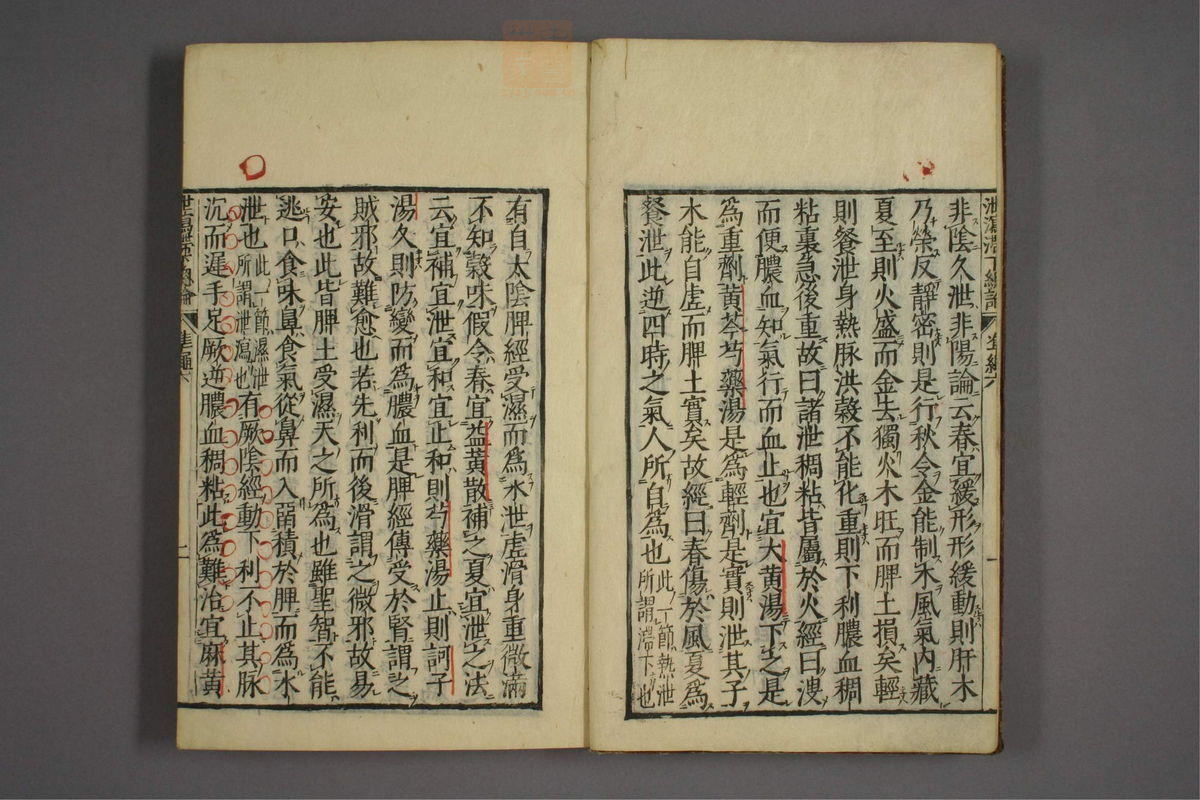 非陰久泄非陽論云春宜緩形形緩動則肝木
乃榮反靜密則是行秋令金能制木風氣內藏
夏至則火盛而金去獨火木旺而脾土損矣輕
則飧泄身熱脉洪穀不能化重則下利膿血稠
粘裏急後重故曰諸泄稠粘皆屬於火經曰溲
而便膿血知氣行而血止也宜大黃湯下之是
爲重劑黃芩芍藥湯是爲輕劑是實則泄其子
木能自虛而脾土實矣故經曰春傷於風夏爲
飧泄此逆四時之氣人所自爲也此一節熱泄
所謂滯下也
有自太陰脾經受濕而爲水泄虛滑身重微滿
不知穀味假令春宜益黃散補之夏宜泄之法
云宜補宜泄宜和宜止和則芍藥湯止則訶子
湯久則防變而爲膿血是脾經傳受於腎謂之
賊邪故難愈也若先利而後滑謂之微邪故易
安也此皆脾土受濕天之所爲也雖聖智不能
逃口食味鼻食氣從鼻而入留積於脾而爲水
泄也此一節濕泄
所謂泄瀉也有厥陰經動下利不止其脉
沉而遲手足厥逆膿血稠粘此爲難治宜麻黃